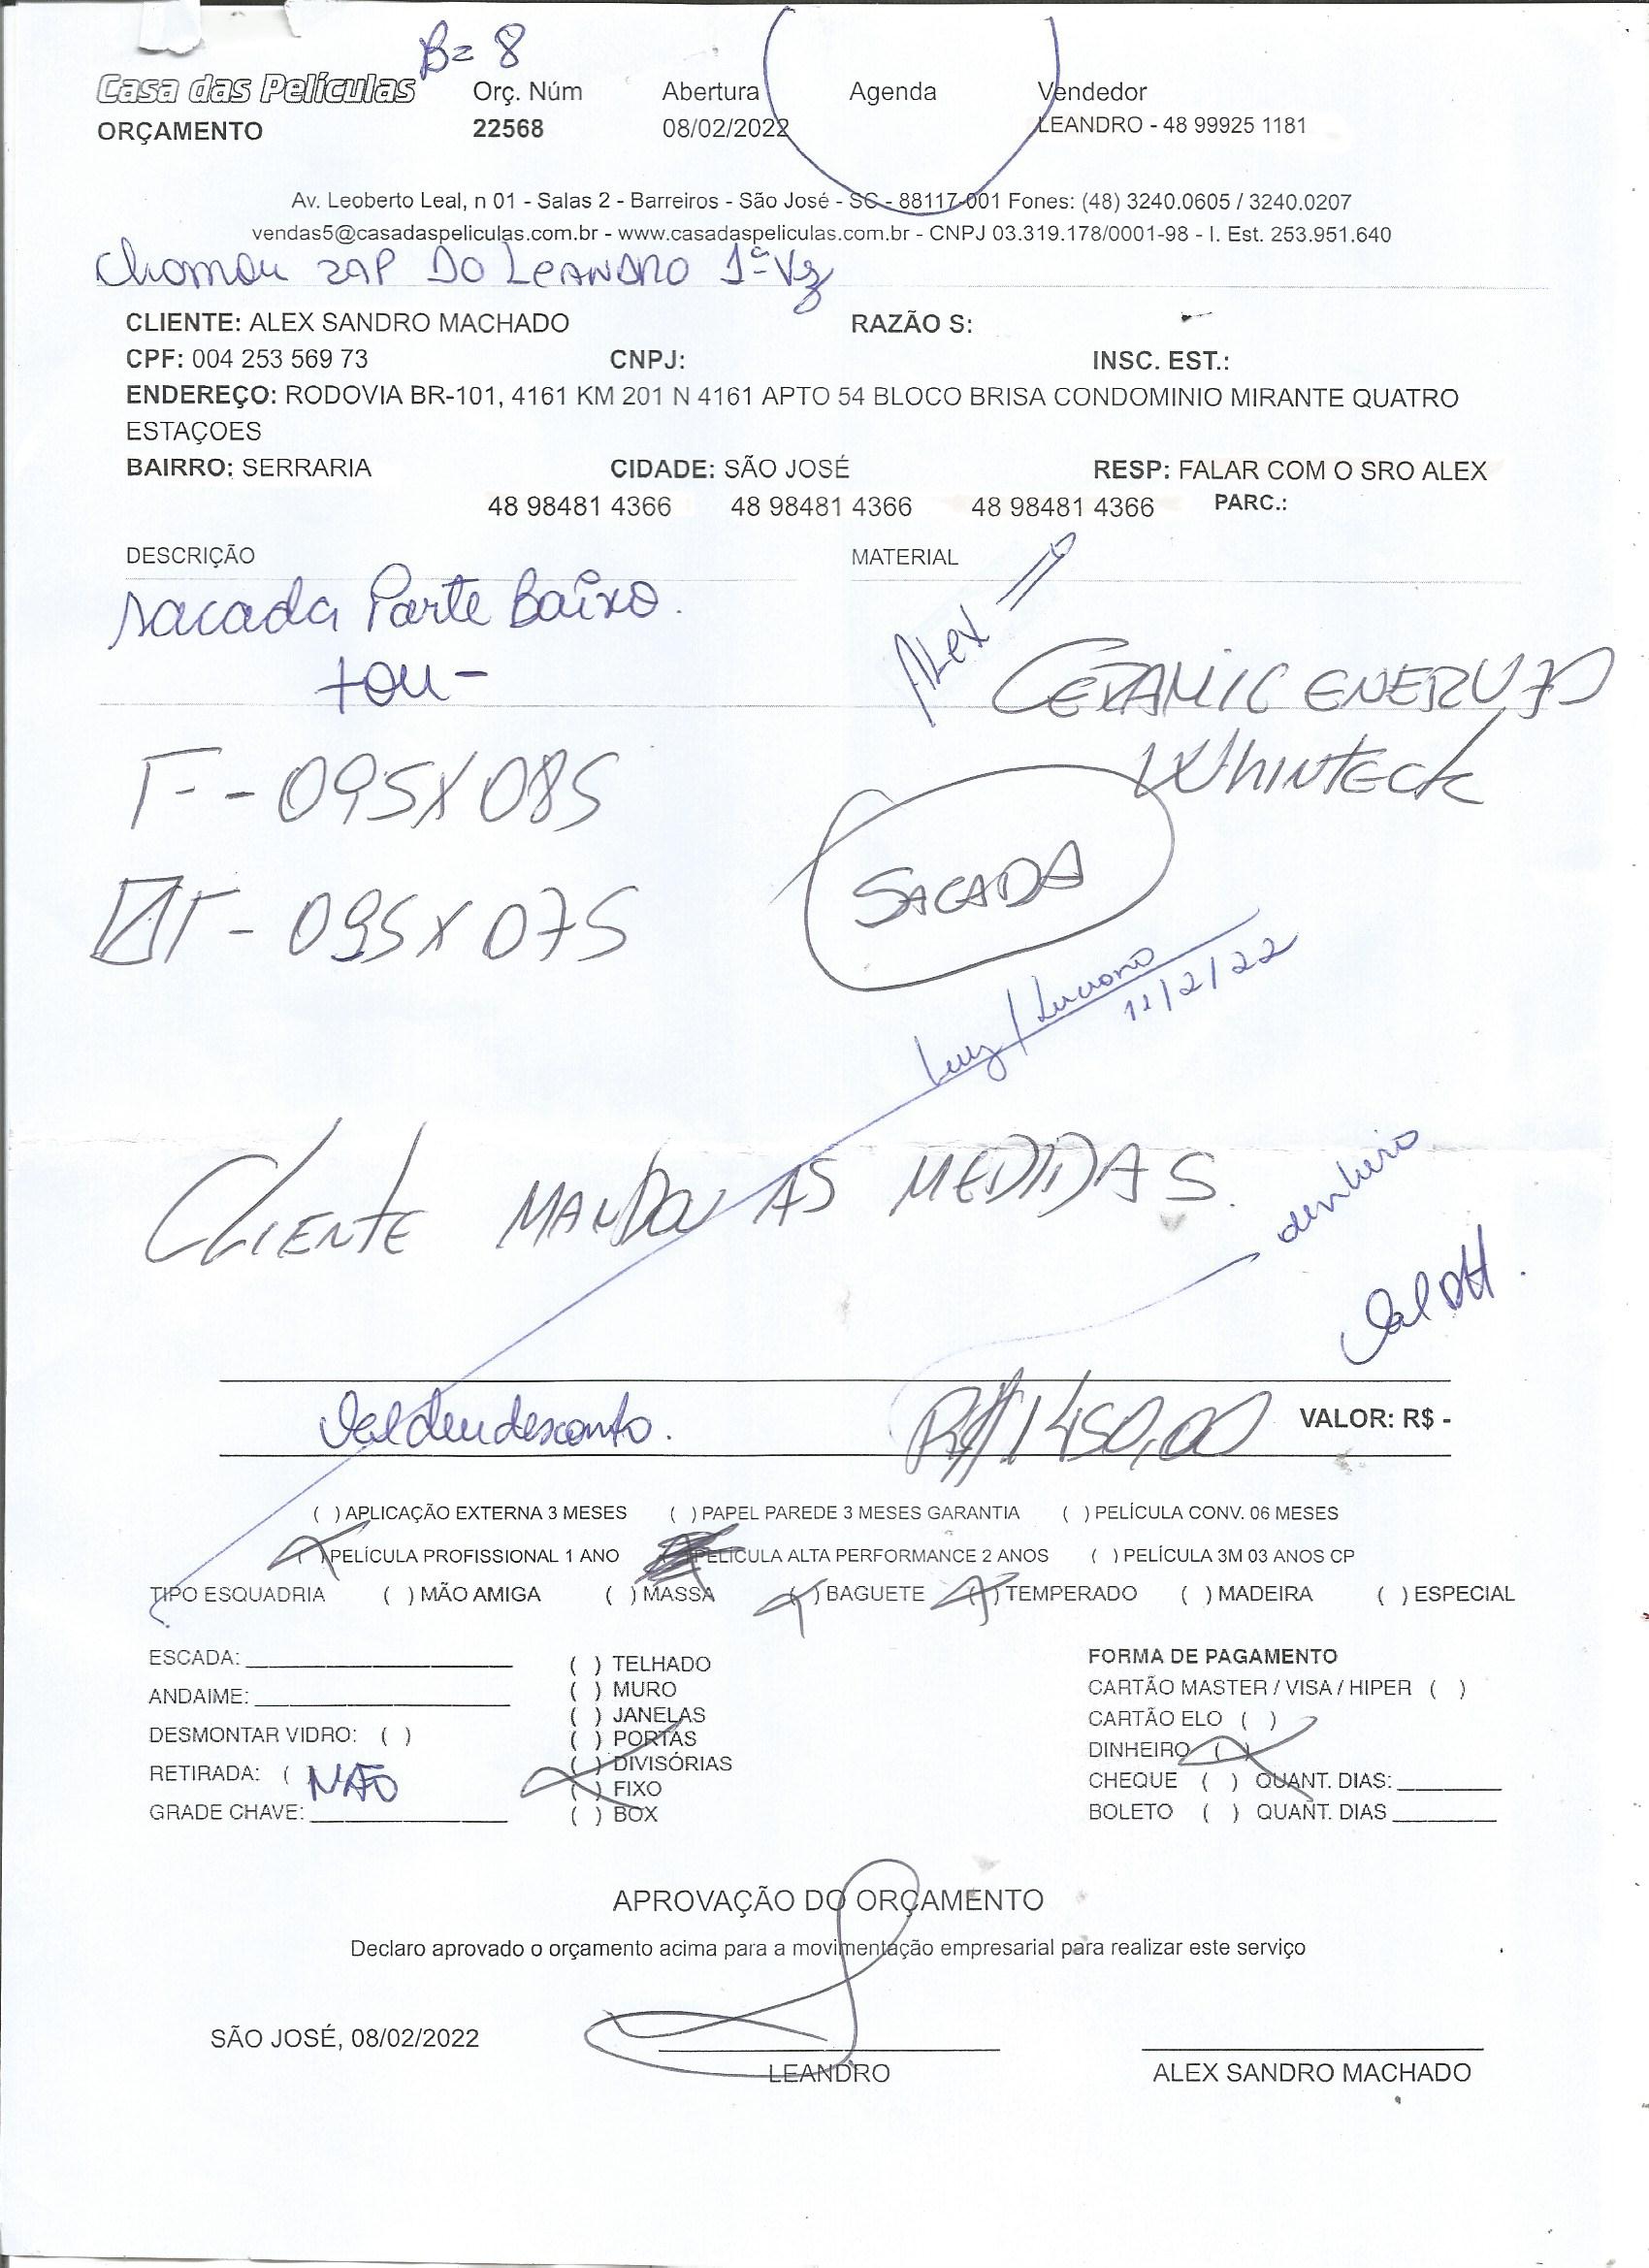 B= 8
Casa das Películas Orç. Núm Abertura Agenda Vendedor
ORÇAMENTO 22568 08/02/2022 LEANDRO - 48 99925 1181
Av. Leoberto Leal, n 01 - Salas 2 - Barreiros - São José - SC - 88117-001 Fones: (48) 3240.0605 / 3240.0207
vendas5@casadaspeliculas.com.br - www.casadaspeliculas.com.br - CNPJ 03.319.178/0001-98 - I. Est. 253.951.640
Chamou ZAP DO LEANDRO 1ª Vz
CLIENTE: ALEX SANDRO MACHADO RAZÃO S:
CPF: 004 253 569 73 CNPJ: INSC. EST.:
ENDEREÇO: RODOVIA BR-101, 4161 KM 201 N 4161 APTO 54 BLOCO BRISA CONDOMINIO MIRANTE QUATRO
ESTAÇOES
BAIRRO: SERRARIA CIDADE: SÃO JOSÉ RESP: FALAR COM O SRO ALEX
48 98481 4366 48 98481 4366 48 98481 4366 PARC.:
DESCRIÇÃO MATERIAL
sacada Parte Baixo.
+ou-
ALEX
CERAMIC ENERUZO
WhINTECK
F-- 095X085
F- 095X075
SACADA
Luiz/Luciano
11/2/22
CLIENTE MANDOU AS MEDIDAS.
dinheiro
Val deu desconto. R$ 1450,00 VALOR: R$ -
( ) APLICAÇÃO EXTERNA 3 MESES ( ) PAPEL PAREDE 3 MESES GARANTIA ( ) PELÍCULA CONV. 06 MESES
(X) PELÍCULA PROFISSIONAL 1 ANO PELÍCULA ALTA PERFORMANCE 2 ANOS ( ) PELÍCULA 3M 03 ANOS CP
TIPO ESQUADRIA ( ) MÃO AMIGA ( ) MASSA (X) BAGUETE (X) TEMPERADO ( ) MADEIRA ( ) ESPECIAL
ESCADA:
ANDAIME:
DESMONTAR VIDRO: ( )
RETIRADA: ( NÃO
GRADE CHAVE:
( ) TELHADO
( ) MURO
( ) JANELAS
( ) PORTAS
( ) DIVISÓRIAS
(X) FIXO
( ) BOX
FORMA DE PAGAMENTO
CARTÃO MASTER / VISA / HIPER ( )
CARTÃO ELO ( )
DINHEIRO (X)
CHEQUE ( ) QUANT. DIAS:
BOLETO ( ) QUANT. DIAS
APROVAÇÃO DO ORÇAMENTO
Declaro aprovado o orçamento acima para a movimentação empresarial para realizar este serviço
SÃO JOSÉ, 08/02/2022
LEANDRO ALEX SANDRO MACHADO